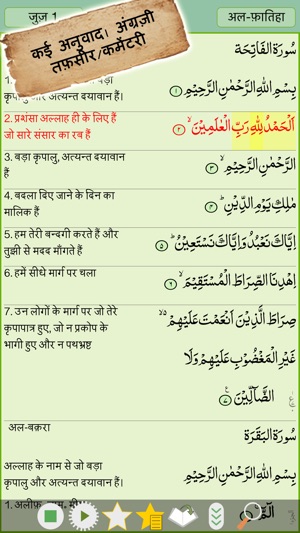 जुज़ 1
अल-फ़ातिहा
कई अनुवाद। अंग्रज़ी
तफ़सीर/कमेंटरी
سُورَةُ الْفَاتِحَة
بِسْمِ اللهِ الرَّحْمٰنِ الرَّحِيْمِ ﴿١﴾
और अत्यन्त दयावान हैं।
2. प्रशंसा अल्लाह ही के लिए हैं
जो सारे संसार का रब हैं
اَلْحَمْدُ لِلّٰهِ رَبِّ الْعٰلَمِيْنَ ۙ ﴿٢﴾
3. बड़ा कृपालु, अत्यन्त दयावान
हैं
الرَّحْمٰنِ الرَّحِيْمِ ۙ ﴿٣﴾
4. बदला दिए जाने के दिन का
मालिक हैं
مٰلِكِ يَوْمِ الدِّيْنِ ۗ ﴿٤﴾
5. हम तेरी बन्दगी करते हैं और
तुझी से मदद माँगते हैं
اِيَّاكَ نَعْبُدُ وَاِيَّاكَ نَسْتَعِيْنُ ۗ ﴿٥﴾
6. हमें सीधे मार्ग पर चला
اِهْدِنَا الصِّرَاطَ الْمُسْتَقِيْمَ ۙ ﴿٦﴾
7. उन लोगों के मार्ग पर जो तेरे
कृपापात्र हुए, जो न प्रकोप के
भागी हुए और न पथभ्रष्ट
صِرَاطَ الَّذِيْنَ اَنْعَمْتَ عَلَيْهِمْ ۙ
غَيْرِ الْمَغْضُوْبِ عَلَيْهِمْ وَلَا
الضَّآلِّيْنَ ﴿٧﴾
अल-बक़रा
سُورَةُ الْبَقَرَة
अल्लाह के नाम से जो बड़ा
कृपालु और अत्यन्त दयावान हैं।
بِسْمِ اللهِ الرَّحْمٰنِ الرَّحِيْمِ
1. अलीफ़॰
الٓمّٓ